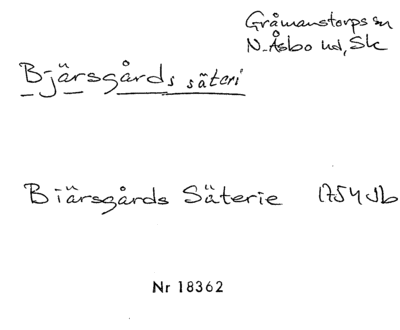 Gråmanstorps sn
N. Åsbo hd, Sk
Bjärsgårds säteri
Biärsgårds Säterie 1754 Jb
Nr 18362